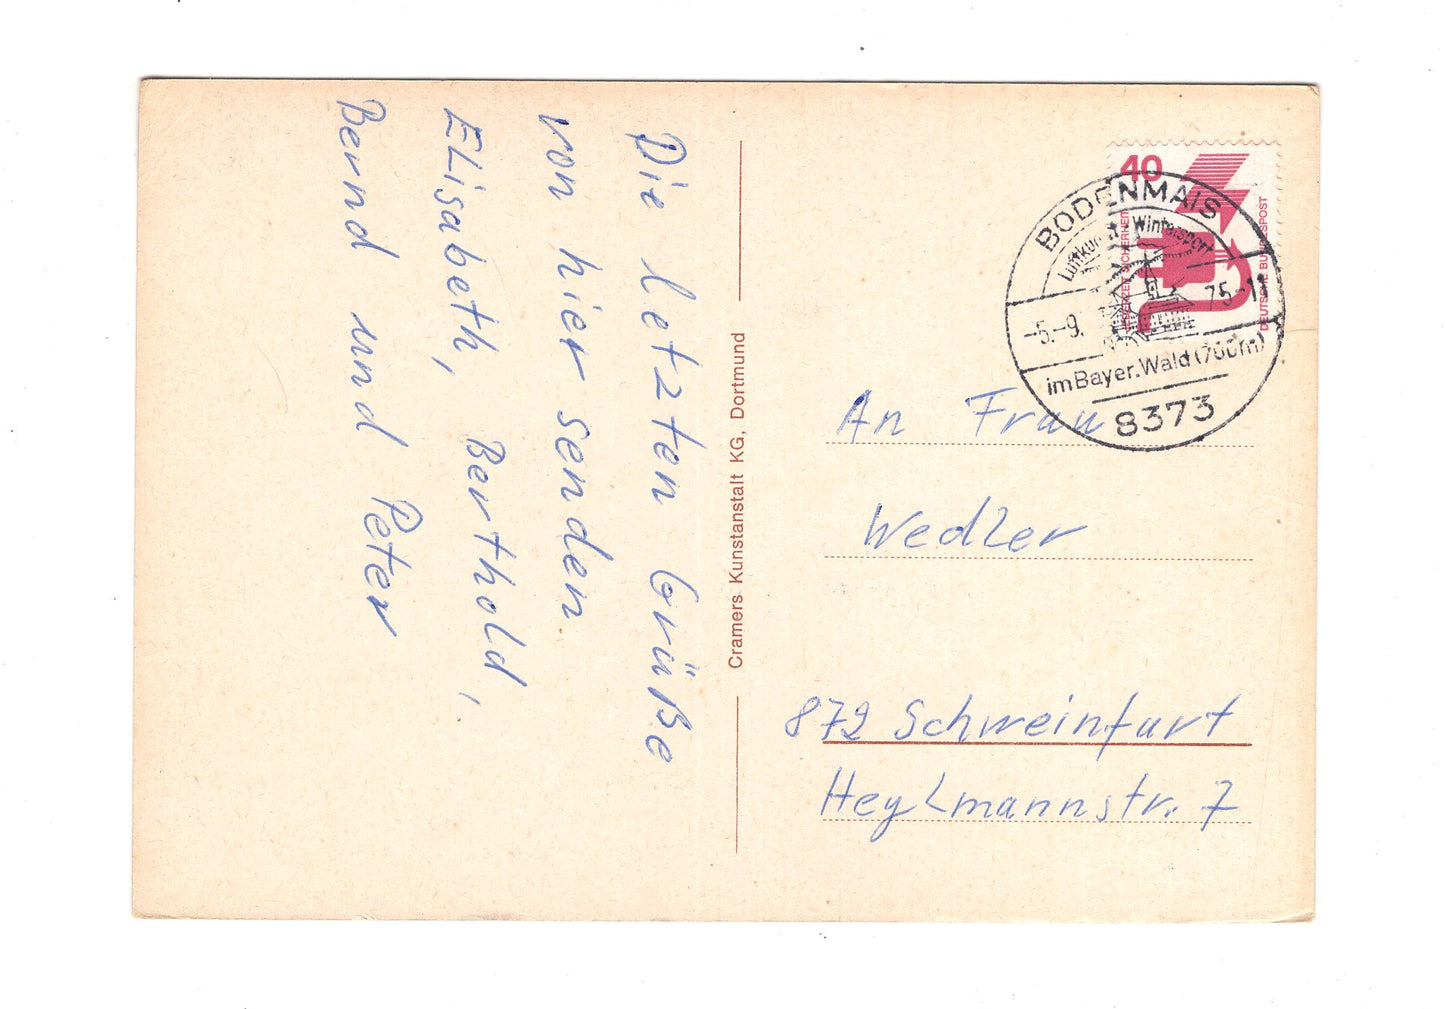 Die letzten Grüße
von hier senden
Elisabeth, Berthold,
Bernd und Peter
Cramers Kunstanstalt KG, Dortmund
40
DEUTSCHE BUNDESPOST
JEDERZEIT SICHERHEIT
BODENMAIS
Luftkurort Wintersport
-5.-9. 75-11
im Bayer. Wald (700m)
8373
An Frau
Wedler
872 Schweinfurt
Heylmannstr. 7